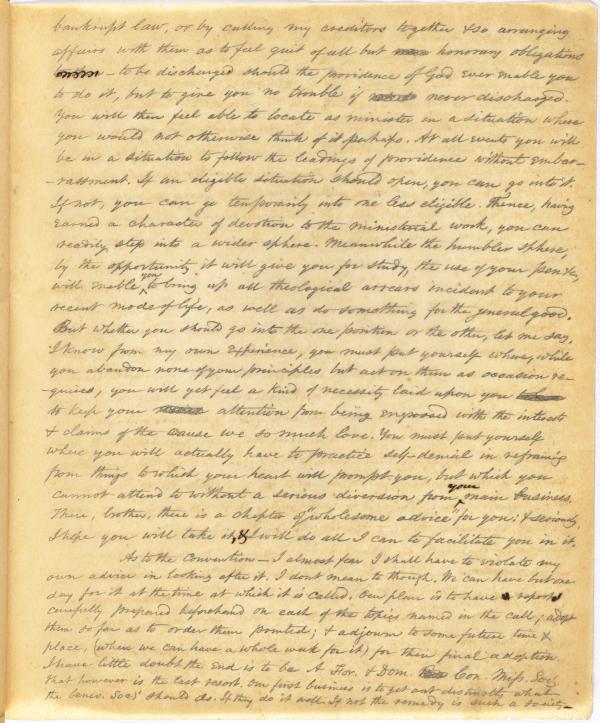 bankrupt law, or by calling my creditors together & so arranging
affairs with them as to feel quit of all but honorary obligations
- to be discharged should the providence of God ever enable you
to do it, but to give you no trouble if never discharged.
You will then feel able to locate as minister in a situation where
you would not otherwise think of it perhaps. At all events you will
be in a situation to follow the leadings of providence without embar-
-rassment. If an eligible situation should open, you can go into it.
If not, you can go temporarily into one less eligible. Thence, having
earned a character of devotion to the ministerial work, you can
readily step into a wider sphere. Meanwhile the humbler sphere,
by the opportunity it will give you for study, the use of your pen &c,
will enable you to bring up all theological arrears incident to your
recent mode of life, as well as do something for the general good.
But whether you should go into the one position or the other, let me say,
I know from my own experience, you must put yourself where, while
you abandon none of your principles but act on them as occasion re-
-quires, you will yet feel a kind of necessity laid upon you
to keep your attention from being engrossed with the interests
& claims of the cause we so much love. You must put yourself
where you will actually have to practice self-denial in refraining
from things to which your heart will prompt you, but which you
cannot attend to without a serious diversion from your main business.
There, brother, there is a chapter of "wholesome advice" for you: & seriously
I hope you will take it, & I will do all I can to facilitate you in it.
As to the Convention - I almost fear I shall have to violate my
own advice in looking after it. I dont mean to though. We can have but one
day for it at the time at which it is called. Our plan is to have reports
carefully prepared beforehand on each of the topics named in the call; adopt
them so far as to order them printed; & adjourn to some future time &
place, (when we can have a whole week for it) for their final adoption.
I have little doubt the end is to be A For. & Dom. Con. Miss. Soc'y
that however is the last resort. Our first business is to get out distinctly what
the benev. Soc's should do. If they do it well. If not the remedy is such a society-